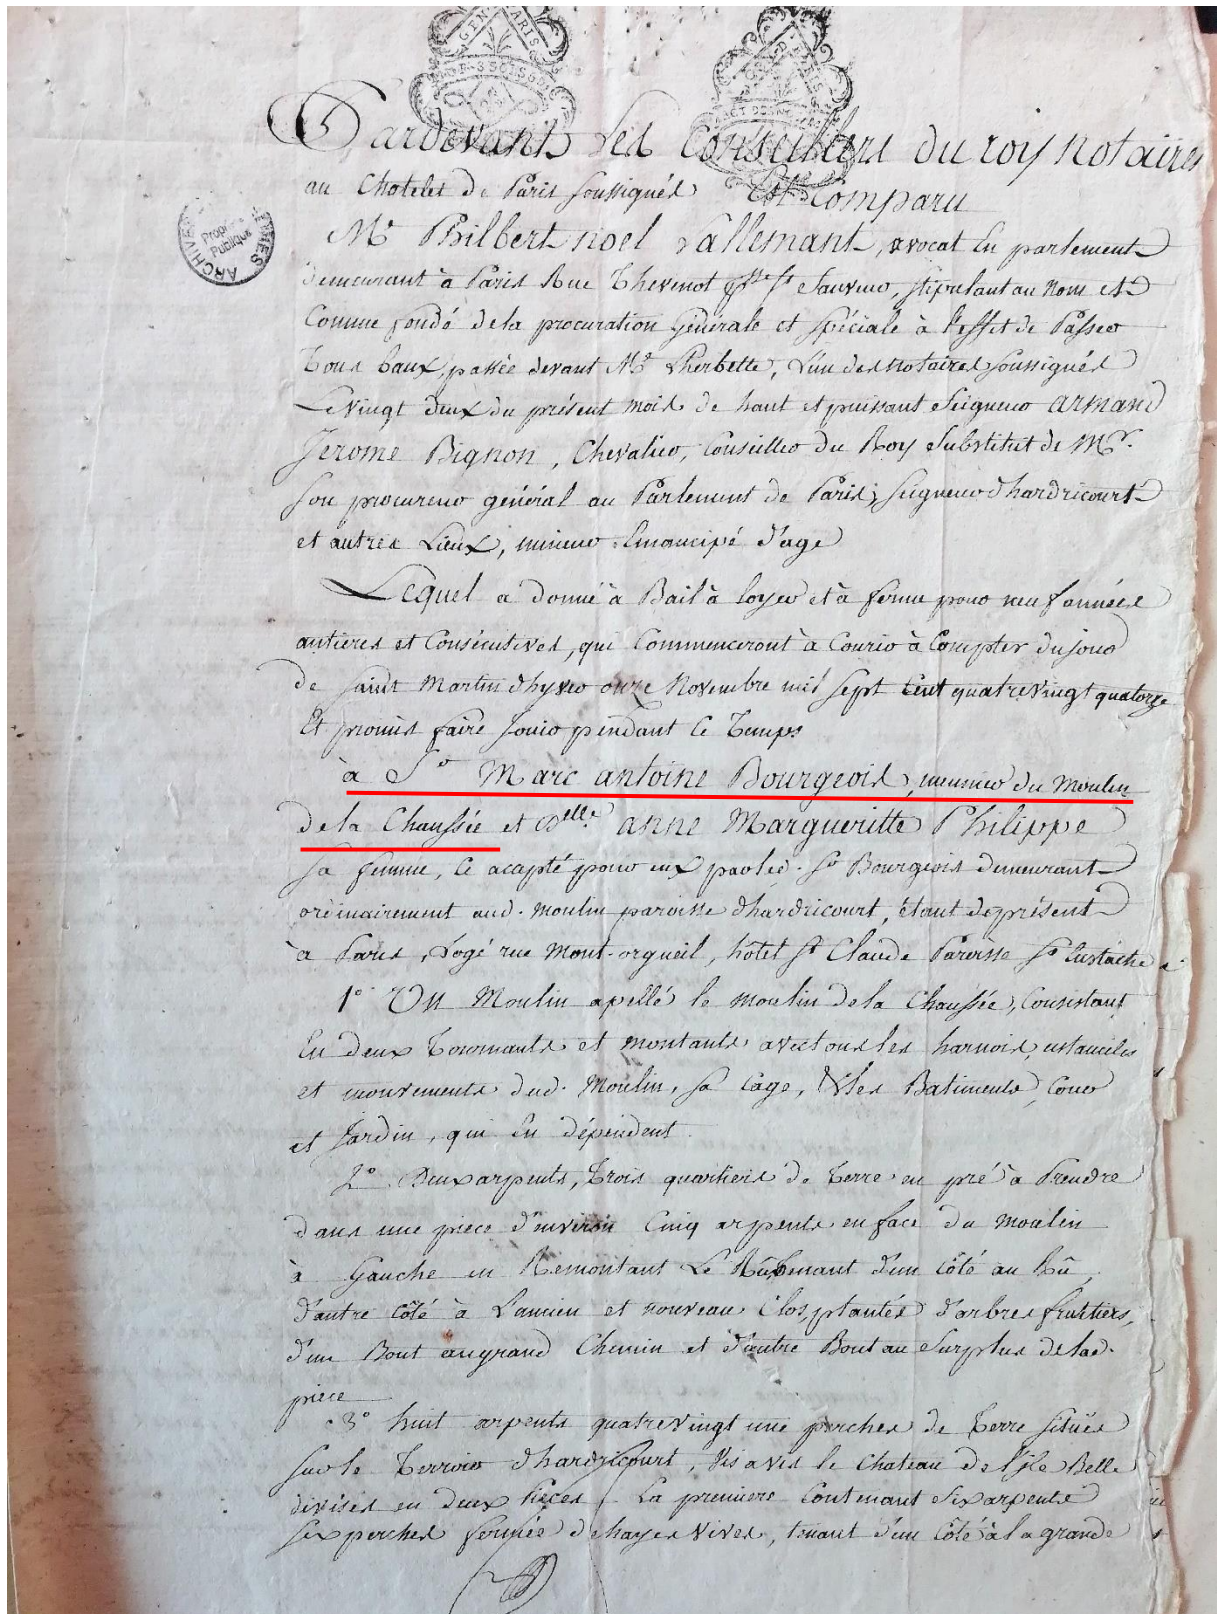 GEN PARIS
Pardevant Les Conseillers du roy notaires
au Chatelet de Paris soussignés Est Comparu
ARCHIVES
Propriété
Publique
Mr. Philbert noel Vallemant, avocat En parlement
demeurant à Paris Rue Thevenot psse. St Sauveur, stipulant au nom et
Comme fondé de la procuration Générale et spéciale à l'effet de Passer
Tous baux, passée devant Me. Lherbette, L'un des notaires soussignés
Le vingt deux du présent mois de haut et puissant Seigneur Armand
Jerome Bignon, Chevalier, Conseiller du Roy Substitut de Mgr.
Son procureur général au Parlement de Paris, seigneur d'hardricourt
et autres Lieux, mineur Emancipé d'age
Lequel a donné à Bail à loyer et à ferme pour neuf années
antieres et Consécutives, qui Commenceront à Courir à Compter du jour
de saint Martin d'hyver onze Novembre mil sept Cent quatre Vingt quatorze
Et promis faire jouir pendant le Temps
à Sr Marc antoine Bourgeois, meunier du Moulin
de la Chaussée et Delle. anne Margueritte Philippe
sa femme, ce acapté pour eux par led. Sr Bourgeois demeurant
ordinairement aud. moulin paroisse d'hardricourt, étant de présent
à Paris, Logé rue Mont-orgueil, hôtel St Claude Paroisse St Eustache
1° Un Moulin apellé le moulin de la Chaussée, Consistant
En deux Tournants et montants avec tous les harnois, ustanciles
et mouvements dud. Moulin, sa Cage, & les Batiments, Cour
et Jardin, qui En dépendent.
2° Deux arpents, Trois quartiers de Terre en pré à Prendre
dans une piece d'environ Cinq arpents en face du moulin
à Gauche en Remontant Le Rû, tenant d'un côté au Rû,
d'autre côté à L'ancien et nouveau Clos, plantés d'arbres fruitiers,
d'un Bout au grand Chemin et d'autre Bout au Surplus de lad.
piece
3° huit arpents quatre Vingt une perches de Terre situées
sur le Terroir d'hardricourt, Vis a Vis le Chateau de l'Jle Belle
divisés en deux Pièces. La premiere Contenant six arpents
six perches fermée de hayes Vives, tenant d'un Côté à la grande